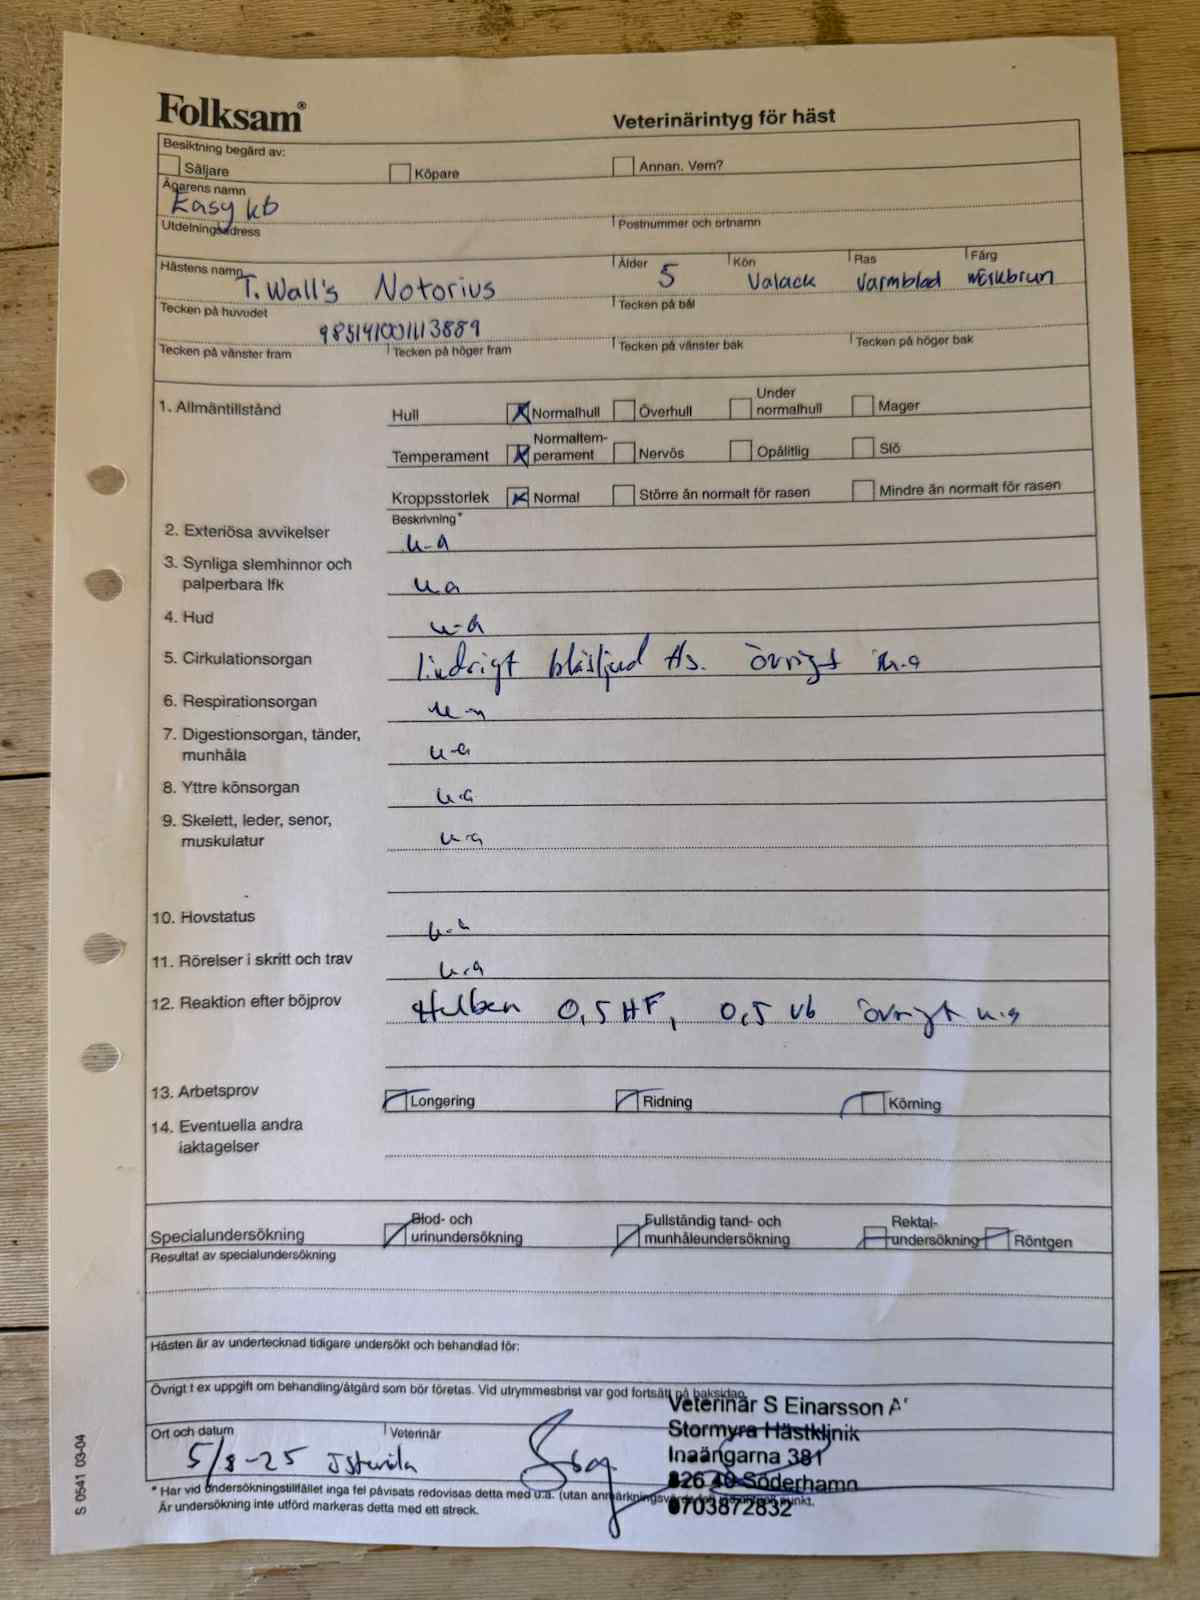 Folksam®
Veterinärintyg för häst
Besiktning begärd av:
Säljare Köpare Annan. Vem?
Ägarens namn
Easy kb
Utdelningsadress Postnummer och ortnamn
Hästens namn Ålder Kön Ras Färg
T. Wall's Notorius 5 Valack Varmblod mörkbrun
Tecken på huvudet Tecken på bål
985141001113889
Tecken på vänster fram Tecken på höger fram Tecken på vänster bak Tecken på höger bak
1. Allmäntillstånd
Hull Normalhull Överhull Under normalhull Mager
Temperament Normaltem-perament Nervös Opålitlig Slö
Kroppsstorlek Normal Större än normalt för rasen Mindre än normalt för rasen
Beskrivning*
2. Exteriösa avvikelser u-a
3. Synliga slemhinnor och
palperbara lfk u a
4. Hud u-a
5. Cirkulationsorgan lindrigt blåsljud övrigt u.a
6. Respirationsorgan u-a
7. Digestionsorgan, tänder,
munhåla u-a
8. Yttre könsorgan u.a
9. Skelett, leder, senor,
muskulatur u-a
10. Hovstatus u-a
11. Rörelser i skritt och trav u.a
12. Reaktion efter böjprov Helben 0,5 HF, 0,5 vb övrigt u.a
13. Arbetsprov Longering Ridning Körning
14. Eventuella andra
iaktagelser
Specialundersökning Blod- och urinundersökning Fullständig tand- och munhåleundersökning Rektal-undersökning Röntgen
Resultat av specialundersökning
Hästen är av undertecknad tidigare undersökt och behandlad för:
Övrigt t ex uppgift om behandling/åtgärd som bör företas. Vid utrymmesbrist var god fortsätt på baksidan
Veterinär S Einarsson
Ort och datum Veterinär
Stormyra Hästklinik
5/8-25
Inaängarna 381
826 40 Söderhamn
0703872832
* Har vid undersökningstillfället inga fel påvisats redovisas detta med u.a. (utan anmärkning) punkt.
Är undersökning inte utförd markeras detta med ett streck.
S 0541 03-04